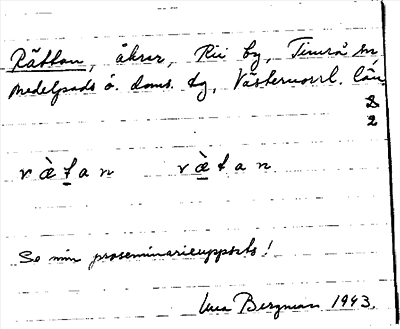 Rättan, åkrar, Rii by, Timrå sn
Medelpads ö. doms. tg, Västernorrl. län.
2
2
r æ̀ t a n   r æ̀ t a n
Se min proseminarieuppsats!
Bergman 1943.